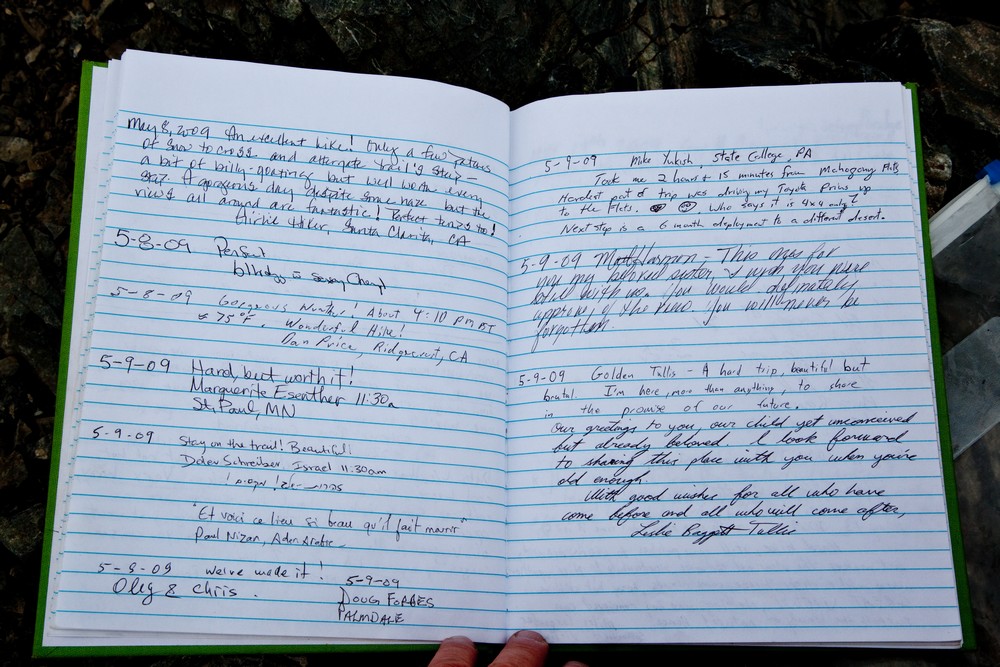 May 8, 2009 An excellent hike! Only a few patches
of snow to cross and alternate trail is steep –
a bit of billy-goating but well worth every
step. A gorgeous day despite some haze but the
views all around are fantastic! Perfect temps too!
Hiker, Santa Clarita, CA
5-8-09
5-8-09 Gorgeous Weather! About 4:10 pm PST
75°F. Wonderful Hike!
Dan Price, Ridgecrest, CA
5-9-09 Hard, but worth it!
Marguerite Esenther 11:30a
St. Paul, MN
5-9-09 Stay on the trail! Beautiful!
Schreiber, Israel 11:30am
"Et voici ce lieu si beau qu'il fait mourir"
Paul Nizan, Aden Arabie
5-9-09 we've made it!
Oleg & Chris.
5-9-09
DOUG FORBES
PALMDALE
5-9-09 Mike Yukish, State College, PA
Took me 2 hours & 15 minutes from Mahogany Flats
Hardest part of trip was driving my Toyota Prius up
to the Flats. Who says it is 4x4 only?
Next step is a 6 month deployment to a different desert.
5-9-09 This ones for
my beloved sister, I wish you were
still with us. You would definately
approve of this view. You will never be
forgotten.
5-9-09 Golden Tallis – A hard trip, beautiful but
brutal. I'm here, more than anything, to share
in the promise of our future.
Our greetings to you, our child yet unconceived
but already beloved. I look forward
to sharing this place with you when you're
old enough.
With good wishes for all who have
come before and all who will come after,
Leslie Baggett Tallis